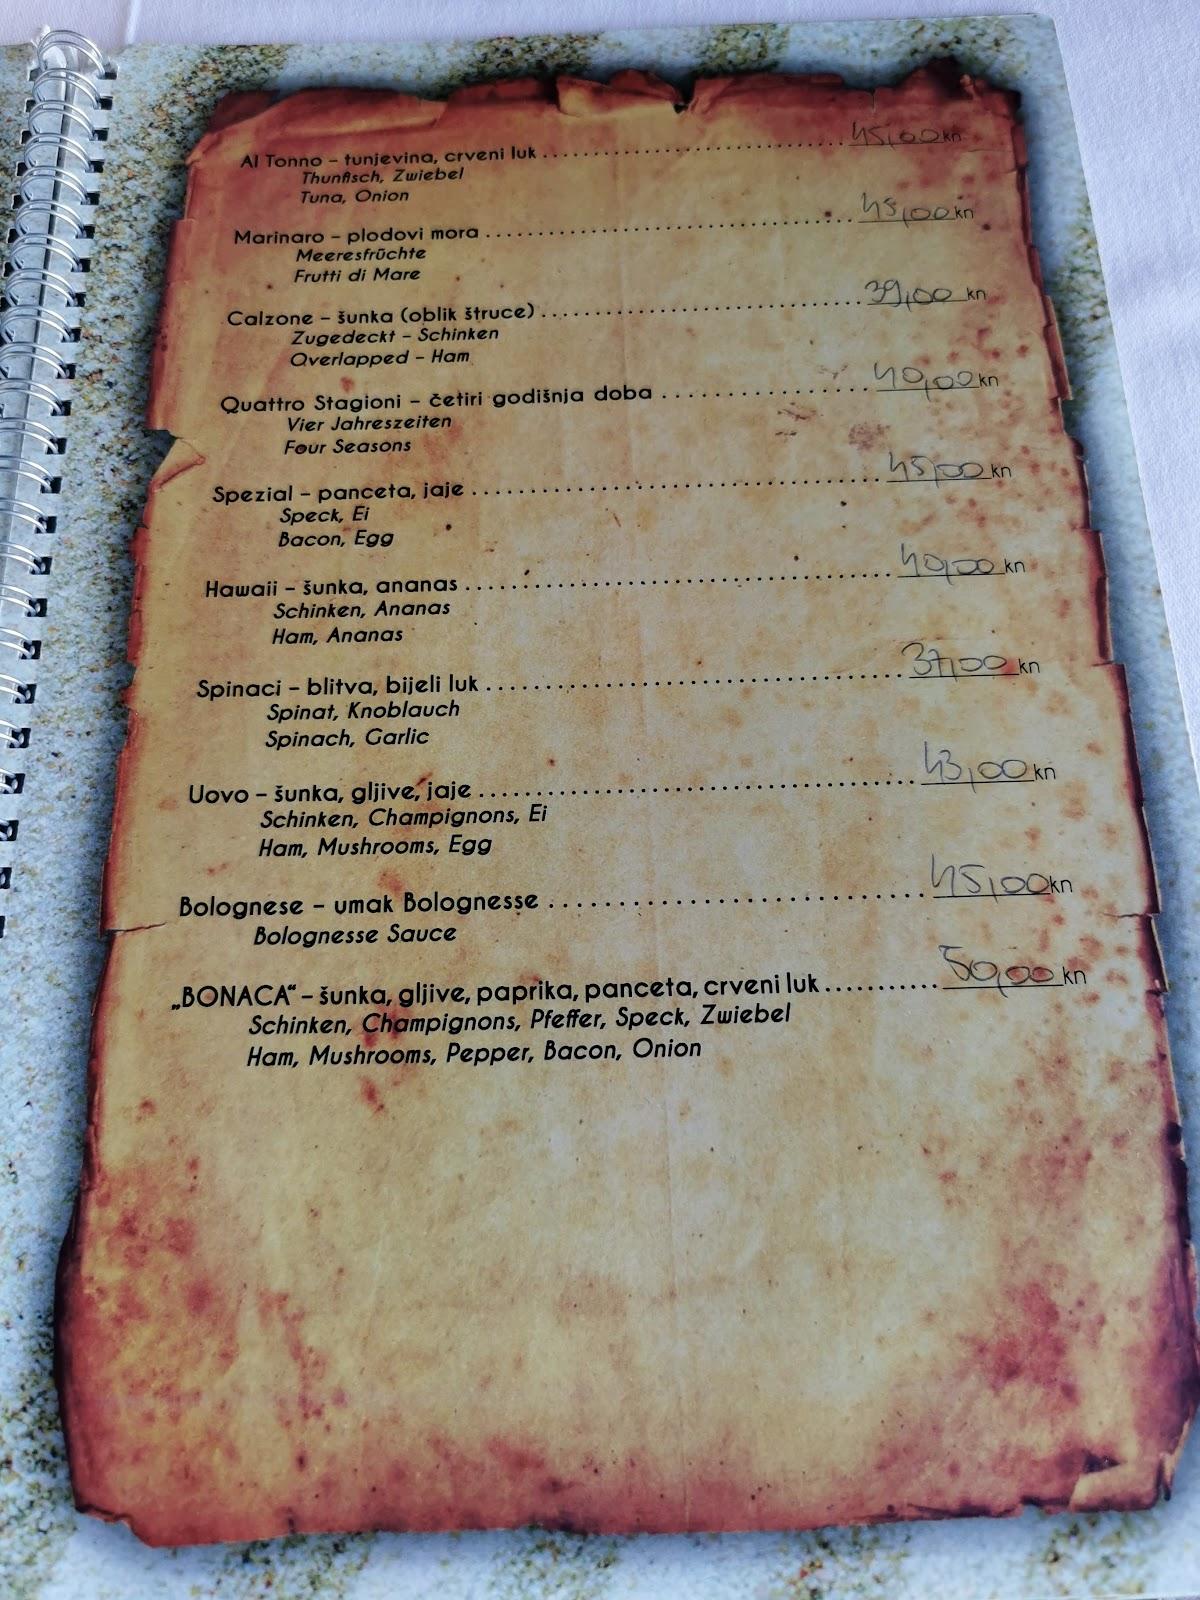 Al Tonno – tunjevina, crveni luk ........................ 45,00 kn
Thunfisch, Zwiebel
Tuna, Onion
Marinaro – plodovi mora ............................. 45,00 kn
Meeresfrüchte
Frutti di Mare
Calzone – šunka (oblik štruce) ......................... 39,00 kn
Zugedeckt – Schinken
Overlapped – Ham
Quattro Stagioni – četiri godišnja doba ................ 40,00 kn
Vier Jahreszeiten
Four Seasons
Spezial – panceta, jaje ................................ 45,00 kn
Speck, Ei
Bacon, Egg
Hawaii – šunka, ananas ................................. 40,00 kn
Schinken, Ananas
Ham, Ananas
Spinaci – blitva, bijeli luk ............................ 37,00 kn
Spinat, Knoblauch
Spinach, Garlic
Uovo – šunka, gljive, jaje ............................. 43,00 kn
Schinken, Champignons, Ei
Ham, Mushrooms, Egg
Bolognese – umak Bolognesse ........................... 45,00 kn
Bolognesse Sauce
„BONACA“ – šunka, gljive, paprika, panceta, crveni luk ........... 50,00 kn
Schinken, Champignons, Pfeffer, Speck, Zwiebel
Ham, Mushrooms, Pepper, Bacon, Onion